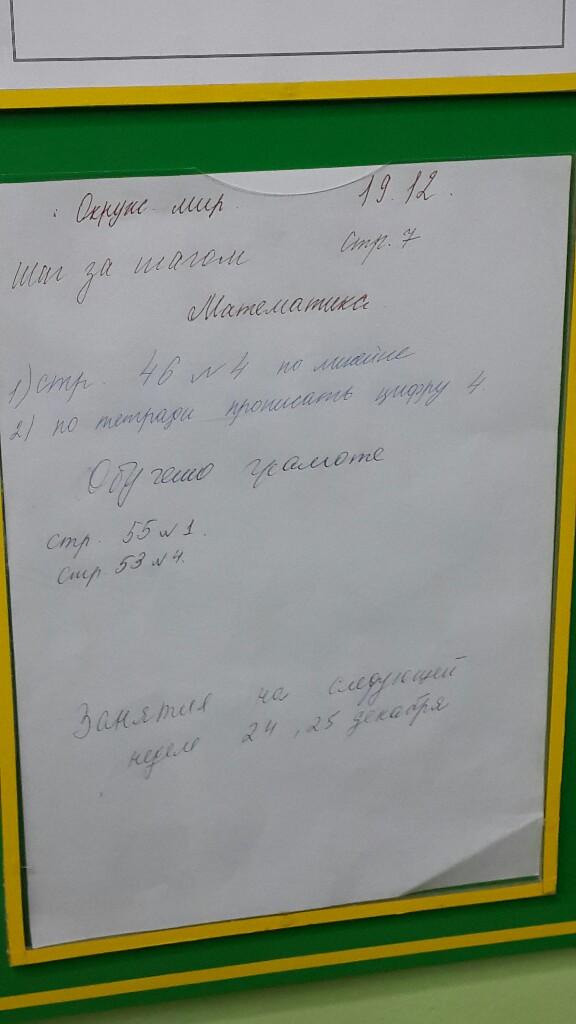 Окруж. мир 19.12.
Шаг за шагом стр. 7
Математика
1) стр. 46 №4 по линейке
2) по тетради прописать цифру 4.
Обучению грамоте
стр. 55 №1.
стр. 53 №4.
Занятия на следующей
неделе 24, 25 декабря